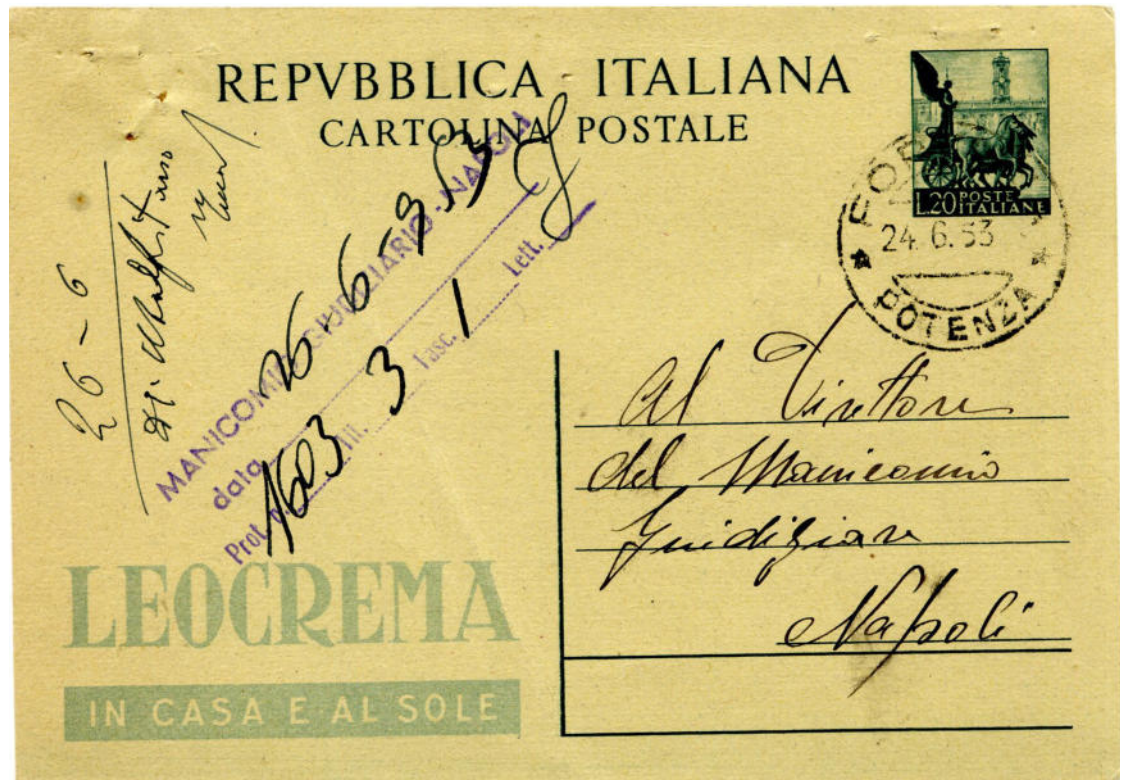 REPVBBLICA ITALIANA
CARTOLINA POSTALE
L.20 POSTE ITALIANE
24.6.53
POTENZA
26-6
MANICOMIO GIUDIZIARIO - NAPOLI
data 26-6-953
Prot. n. 1603 All. 3 Fasc. 1 Lett.
Al Direttore
del Manicomio
Giudiziario
Napoli
LEOCREMA
IN CASA E AL SOLE